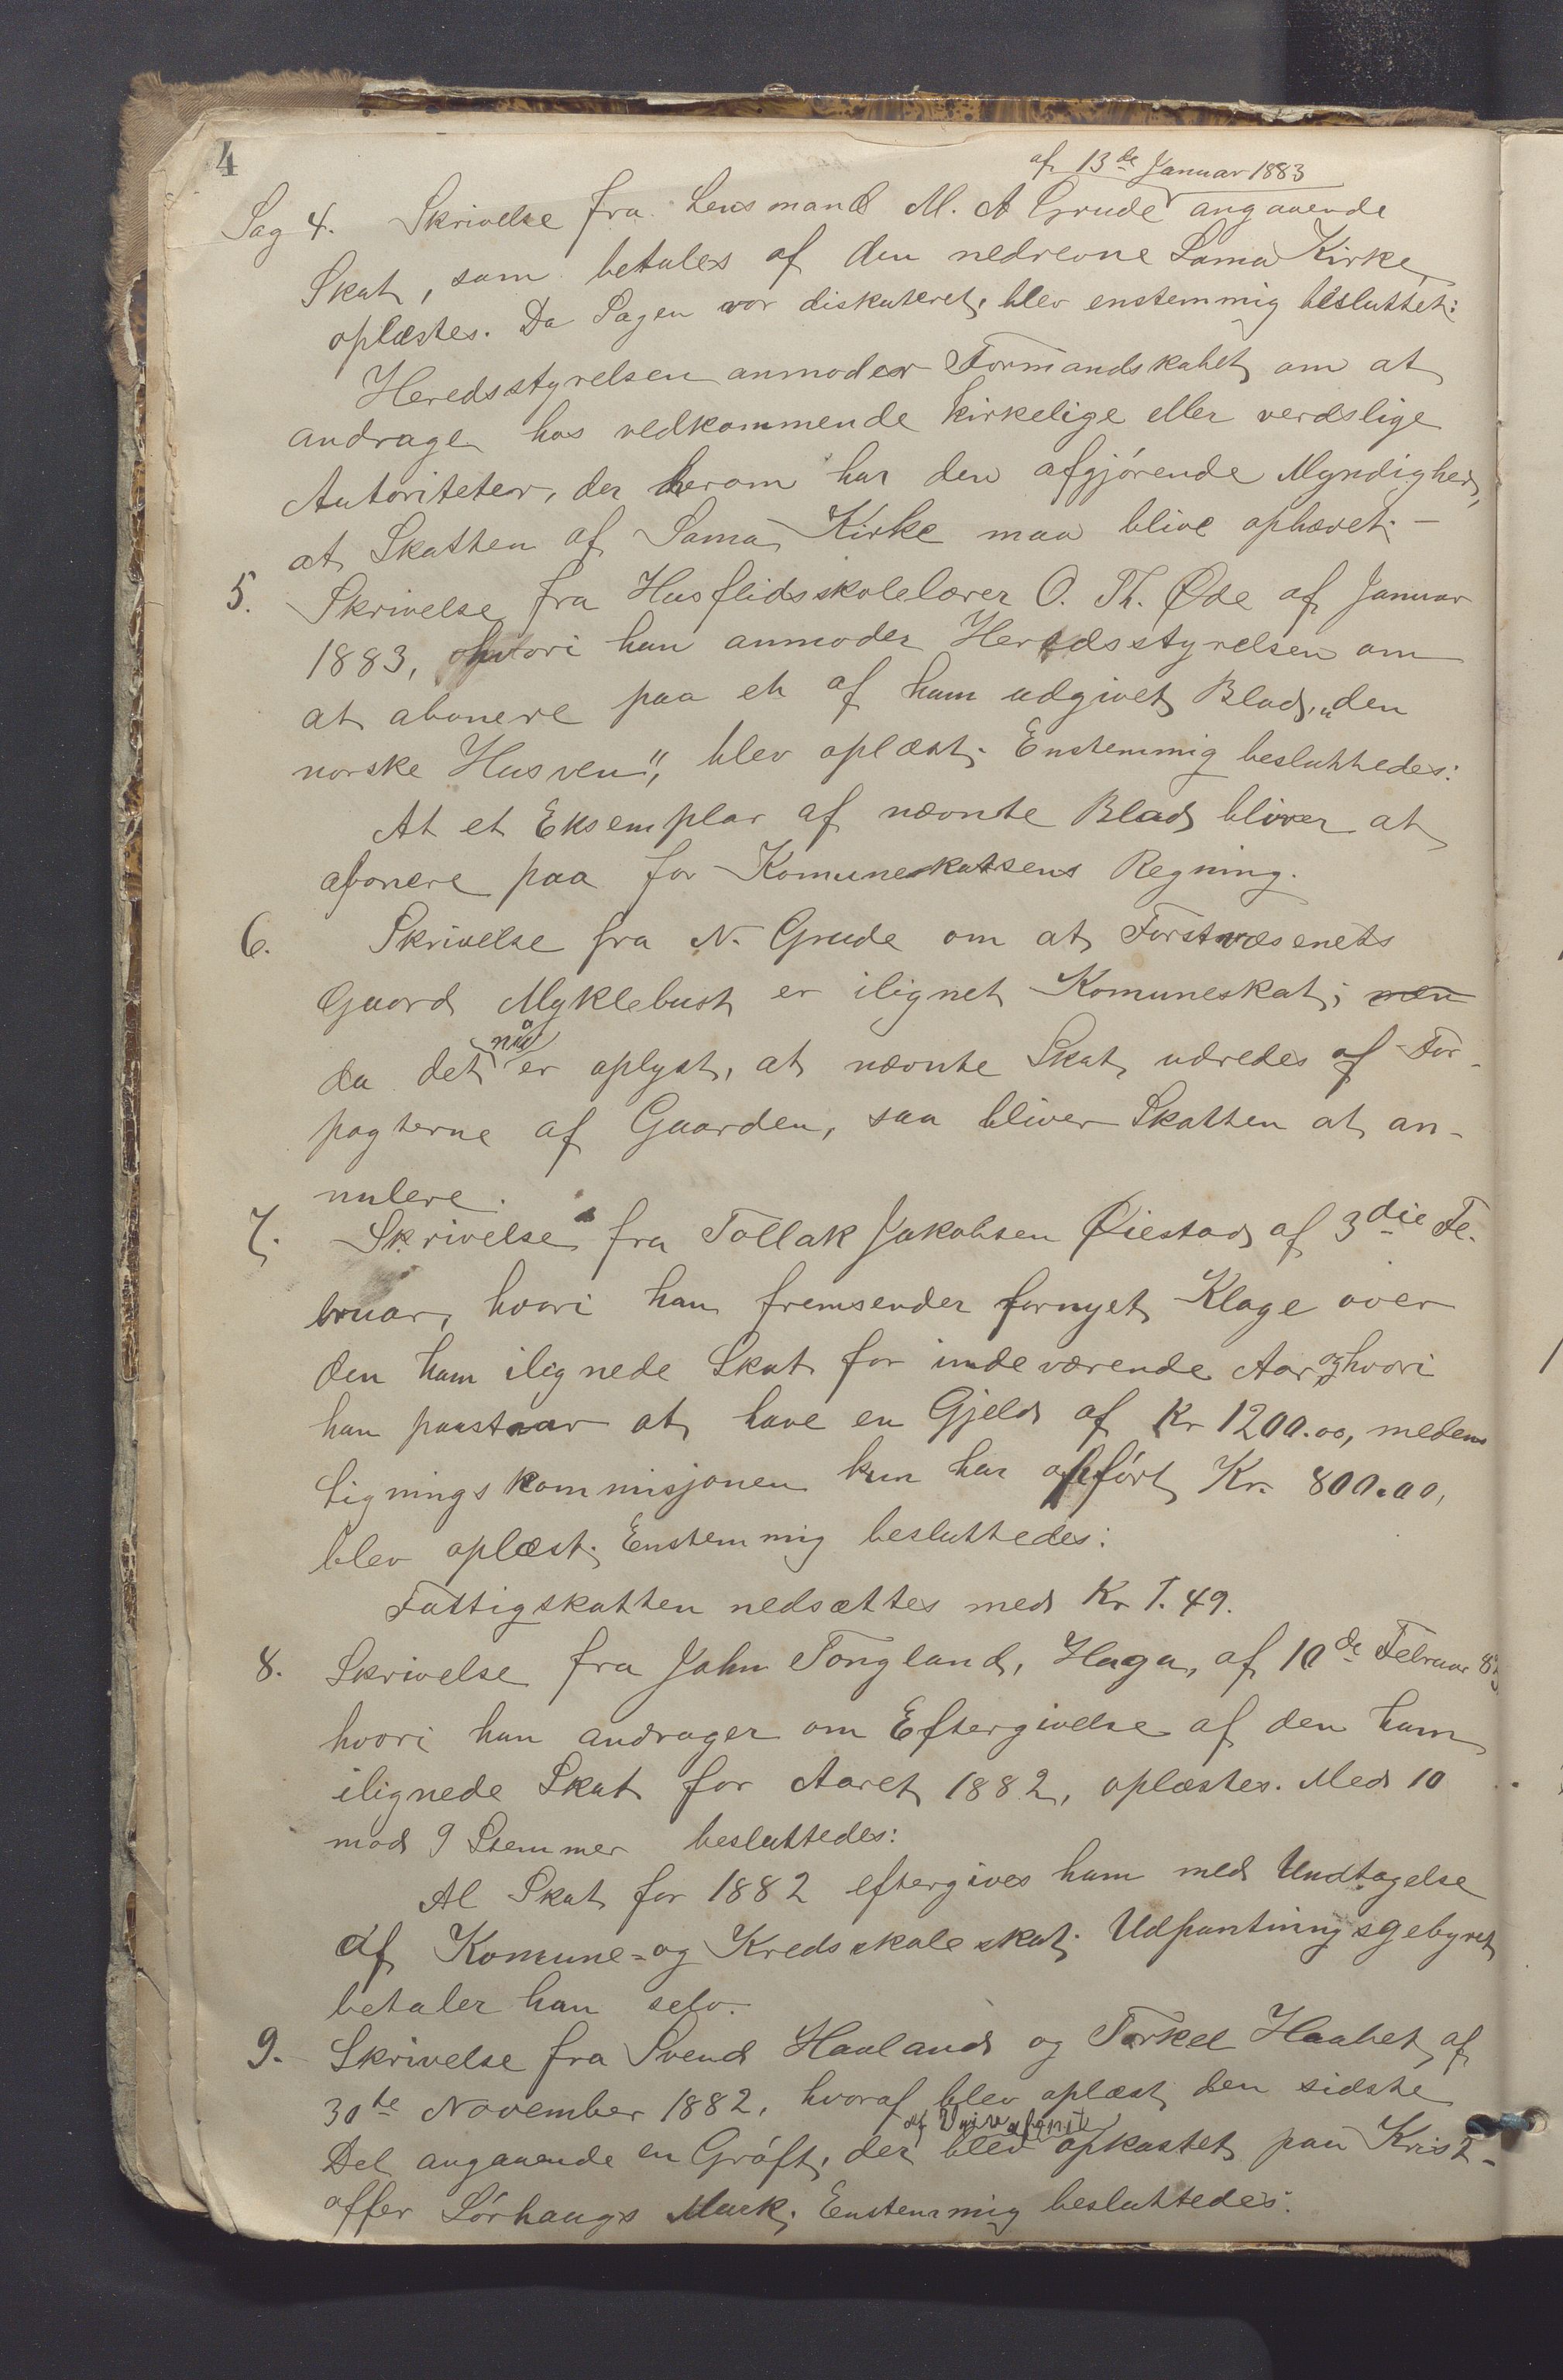 4
af 13de Januar 1883
Sag 4. Skrivelse fra Lensmand M. A Grude angaaende
Skat, som betales af den nedrevne Soma Kirke,
oplæstes. Da Sagen var diskuteret, blev enstemmig besluttet:
Heredsstyrelsen anmoder Formandskabet om at
andrage hos vedkommende kirkelige eller verdslige
Autoriteter, der herom har den afgjørende Myndighed,
at Skatten af Soma Kirke maa blive ophævet. —
5. Skrivelse fra Husflidsskolelærer O. Th. Øde af Januar
1883, hvori han anmoder Heredsstyrelsen om
at abonere paa et af ham udgivet Blad, „den
norske Husven", blev oplæst. Enstemmig besluttedes:
At et Eksemplar af nævnte Blad bliver at
abonere paa for Komunekassens Regning.
6. Skrivelse fra N. Grude om at Forstvæsenets
Gaard Myklebust er ilignet Komuneskat;
nå
da det er oplyst, at nævnte Skat udredes af For-
pagterne af Gaarden, saa bliver Skatten at an-
nulere.
7. Skrivelse fra Tollak Jakobsen Øiestad af 3die Fe-
bruar, hvori han fremsender fornyet Klage over
den ham ilignede Skat for indeværende Aar, og hvori
han paastaar at have en Gjeld af Kr 1200.00, medens
Ligningskommisjonen kun har opført Kr. 800.00,
blev oplæst. Enstemmig besluttedes:
Fattigskatten nedsættes med Kr 1.49.
8. Skrivelse fra John Tongland, Haga, af 10de Februar 83
hvori han andrager om Eftergivelse af den ham
ilignede Skat for Aaret 1882, oplæstes. Med 10
mod 9 Stemmer besluttedes:
Al Skat for 1882 eftergives ham med Undtagelse
af Komune- og Kredsskoleskat. Udpantningsgebyret
betaler han selv.
9. Skrivelse fra Svend Hauland og Torkel Haabet, af
30te November 1882, hvoraf blev oplæst den sidste
af
Del angaaende en Grøft, der blev opkastet paa Krist-
offer Sørhaugs Mark. Enstemmig besluttedes: